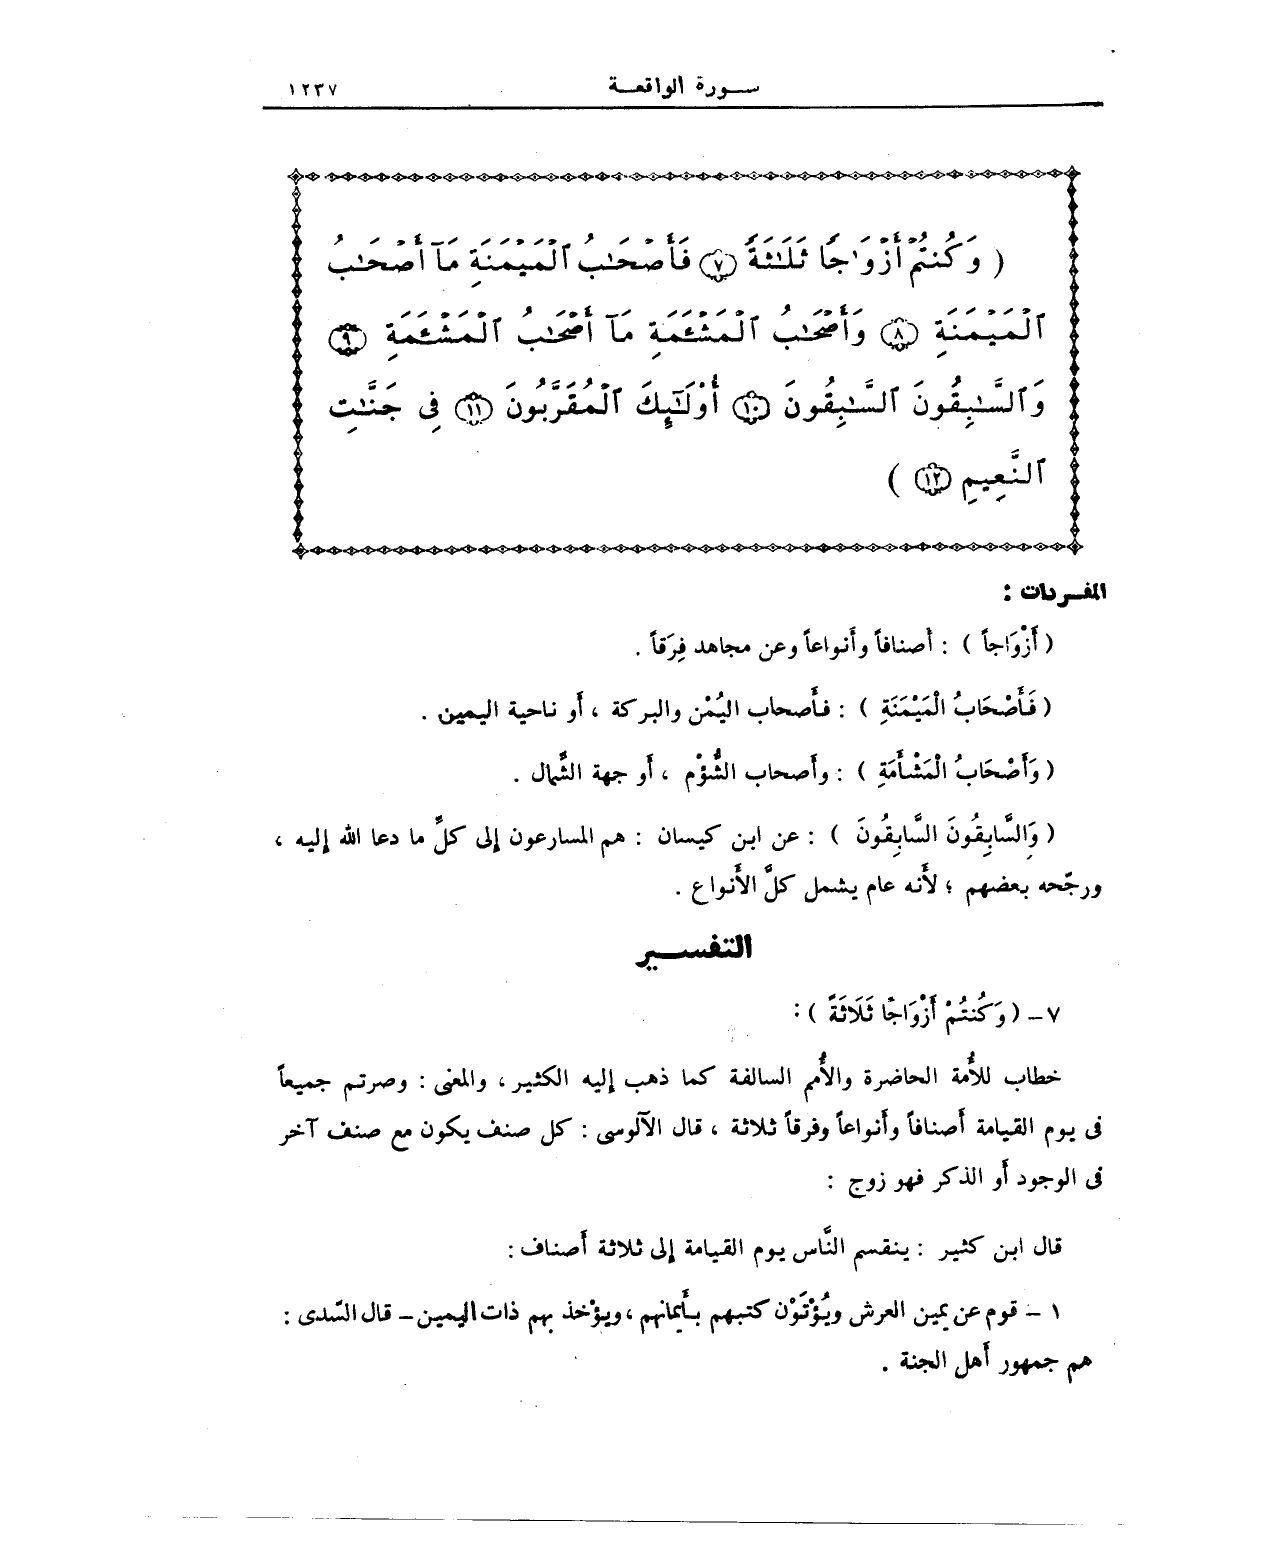 سـورة الواقعـة ١٢٣٧
( وَكُنتُمْ أَزْوَٰجًا ثَلَٰثَةً ٧ فَأَصْحَٰبُ ٱلْمَيْمَنَةِ مَآ أَصْحَٰبُ
ٱلْمَيْمَنَةِ ٨ وَأَصْحَٰبُ ٱلْمَشْـَٔمَةِ مَآ أَصْحَٰبُ ٱلْمَشْـَٔمَةِ ٩
وَٱلسَّٰبِقُونَ ٱلسَّٰبِقُونَ ١٠ أُوْلَٰٓئِكَ ٱلْمُقَرَّبُونَ ١١ فِى جَنَّٰتِ
ٱلنَّعِيمِ ١٢ )
المفـردات :
( أَزْوَاجاً ) : أصنافاً وأنواعاً وعن مجاهد فِرَقاً .
( فَأَصْحَابُ الْمَيْمَنَةِ ) : فأصحاب اليُمْن والبركة ، أو ناحية اليمين .
( وَأَصْحَابُ الْمَشْأَمَةِ ) : وأصحاب الشُّؤْم ، أو جهة الشِّمال .
( وَالسَّابِقُونَ السَّابِقُونَ ) : عن ابن كيسان : هم المسارعون إلى كلِّ ما دعا الله إليه ،
ورجّحه بعضهم ؛ لأَنه عام يشمل كلَّ الأَنواع .
التفسـير
٧ – ( وَكُنتُمْ أَزْوَاجًا ثَلَاثَةً ) :
خطاب للأُمة الحاضرة والأُمم السالفة كما ذهب إليه الكثير ، والمعنى : وصرتم جميعاً
فى يوم القيامة أصنافاً وأنواعاً وفرقاً ثلاثة ، قال الآلوسى : كل صنف يكون مع صنف آخر
فى الوجود أو الذكر فهو زوج :
قال ابن كثير : ينقسم النَّاس يوم القيامة إلى ثلاثة أصناف :
١ – قوم عن يمين العرش ويُؤْتَوْن كتبهم بأَيمانهم ، ويؤْخذ بهم ذات اليمين – قال السّدى :
هم جمهور أهل الجنة .